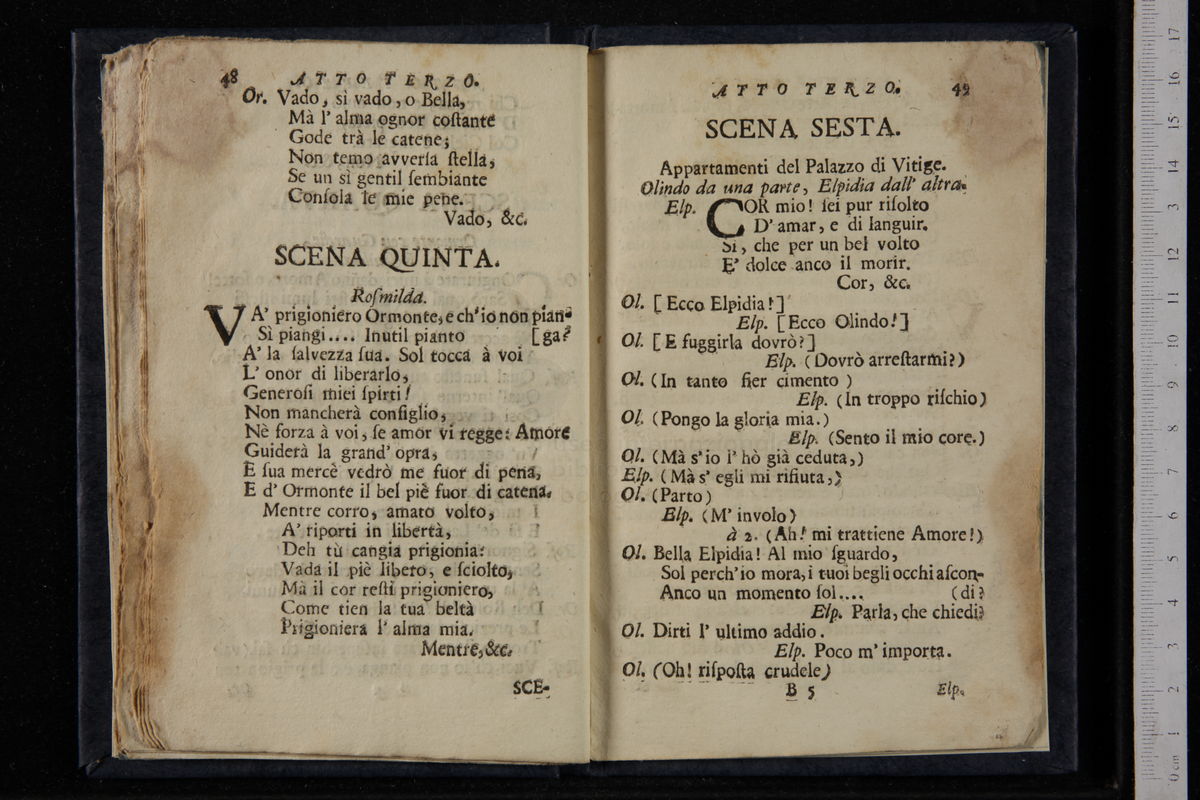 48 ATTO TERZO.
Or. Vado, sì vado, o Bella,
Mà l' alma ognor coſtante
Gode trà le catene;
Non temo avverſa ſtella,
Se un sì gentil ſembiante
Conſola le mie pene.
Vado, &c.
SCENA QUINTA.
Roſmilda.
VA' prigioniero Ormonte, e ch' io non pian-
Sì piangi.... Inutil pianto [ga?
A' la ſalvezza ſua. Sol tocca à voi
L' onor di liberarlo,
Generoſi miei ſpirti!
Non mancherà conſiglio,
Nè forza à voi, ſe amor vi regge: Amore
Guiderà la grand' opra,
E ſua mercè vedrò me fuor di pena,
E d' Ormonte il bel piè fuor di catena.
Mentre corro, amato volto,
A' riporti in libertà,
Deh tù cangia prigionia:
Vada il piè libero, e ſciolto,
Mà il cor reſti prigioniero,
Come tien la tua beltà
Prigioniera l' alma mia.
Mentre, &c.
SCE-
ATTO TERZO. 49
SCENA SESTA.
Appartamenti del Palazzo di Vitige.
Olindo da una parte, Elpidia dall' altra.
Elp. COR mio! ſei pur riſolto
D' amar, e di languir.
Sì, che per un bel volto
E' dolce anco il morir.
Cor, &c.
Ol. [Ecco Elpidia!]
Elp. [Ecco Olindo!]
Ol. [E fuggirla dovrò?]
Elp. (Dovrò arreſtarmi?)
Ol. (In tanto fier cimento )
Elp. (In troppo riſchio)
Ol. (Pongo la gloria mia.)
Elp. (Sento il mio core.)
Ol. (Mà s' io l' hò già ceduta,)
Elp. (Mà s' egli mi rifiuta,)
Ol. (Parto)
Elp. (M' involo)
à 2. (Ah! mi trattiene Amore!)
Ol. Bella Elpidia! Al mio ſguardo,
Sol perch' io mora, i tuoi begli occhi aſcon-
Anco un momento ſol.... (di?
Elp. Parla, che chiedi?
Ol. Dirti l' ultimo addio.
Elp. Poco m' importa.
Ol. (Oh! riſpoſta crudele)
B 5 Elp.
17
16
15
14
13
12
11
10
9
8
7
6
5
4
3
2
1
0 cm